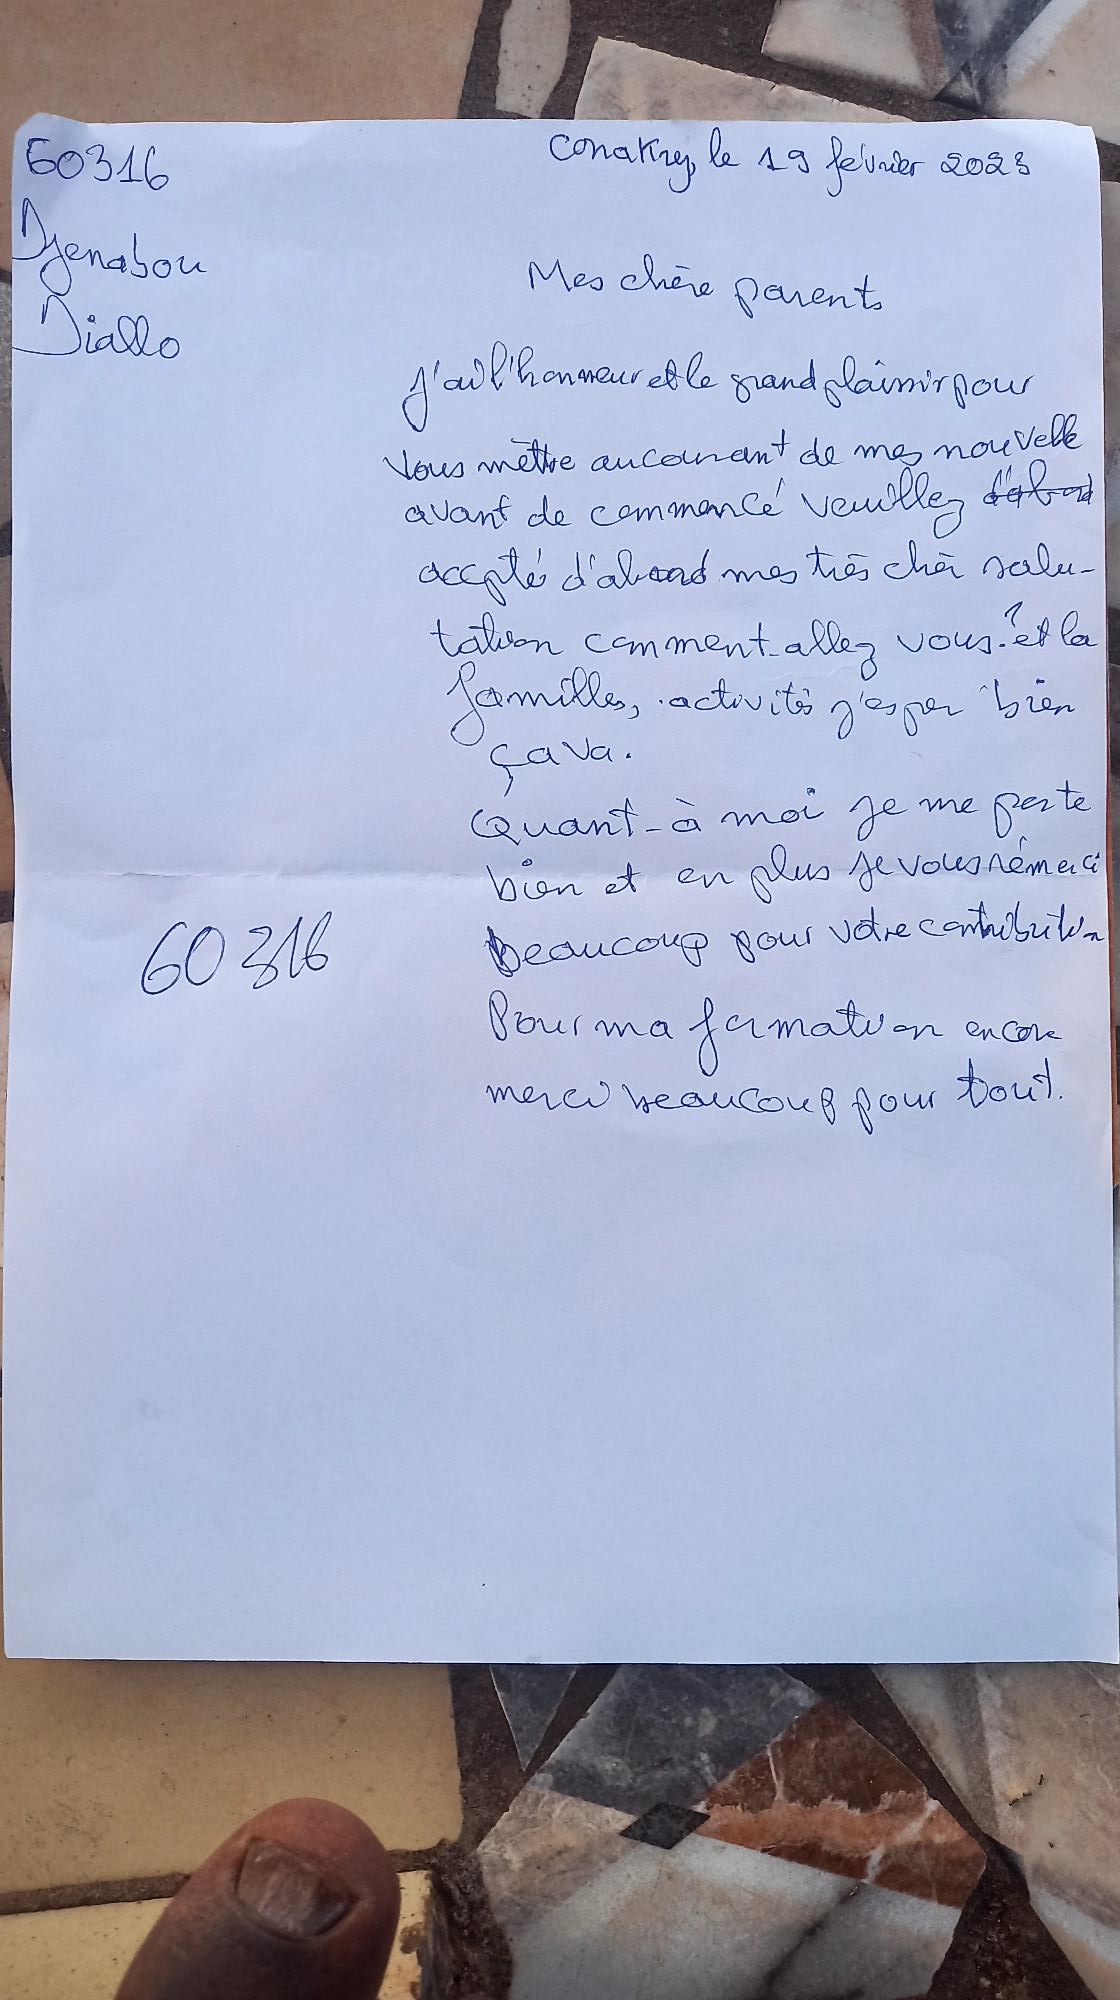 60316
Conakry, le 19 février 2023
Djenabou
Diallo
Mes chère parents
J'ai l'honneur et le grand plaisir pour
vous mettre au courant de mes nouvelle
avant de commencé veuillez d'abord
accpté d'abord mes très chèr salu-
tation comment-allez vous.? et la
familles, activités j'esper bien
çava.
Quant-à moi je me porte
bien et en plus je vous rémerci
60316
beaucoup pour votre contribution
Pour ma formation encore
merci beaucoup pour tout.